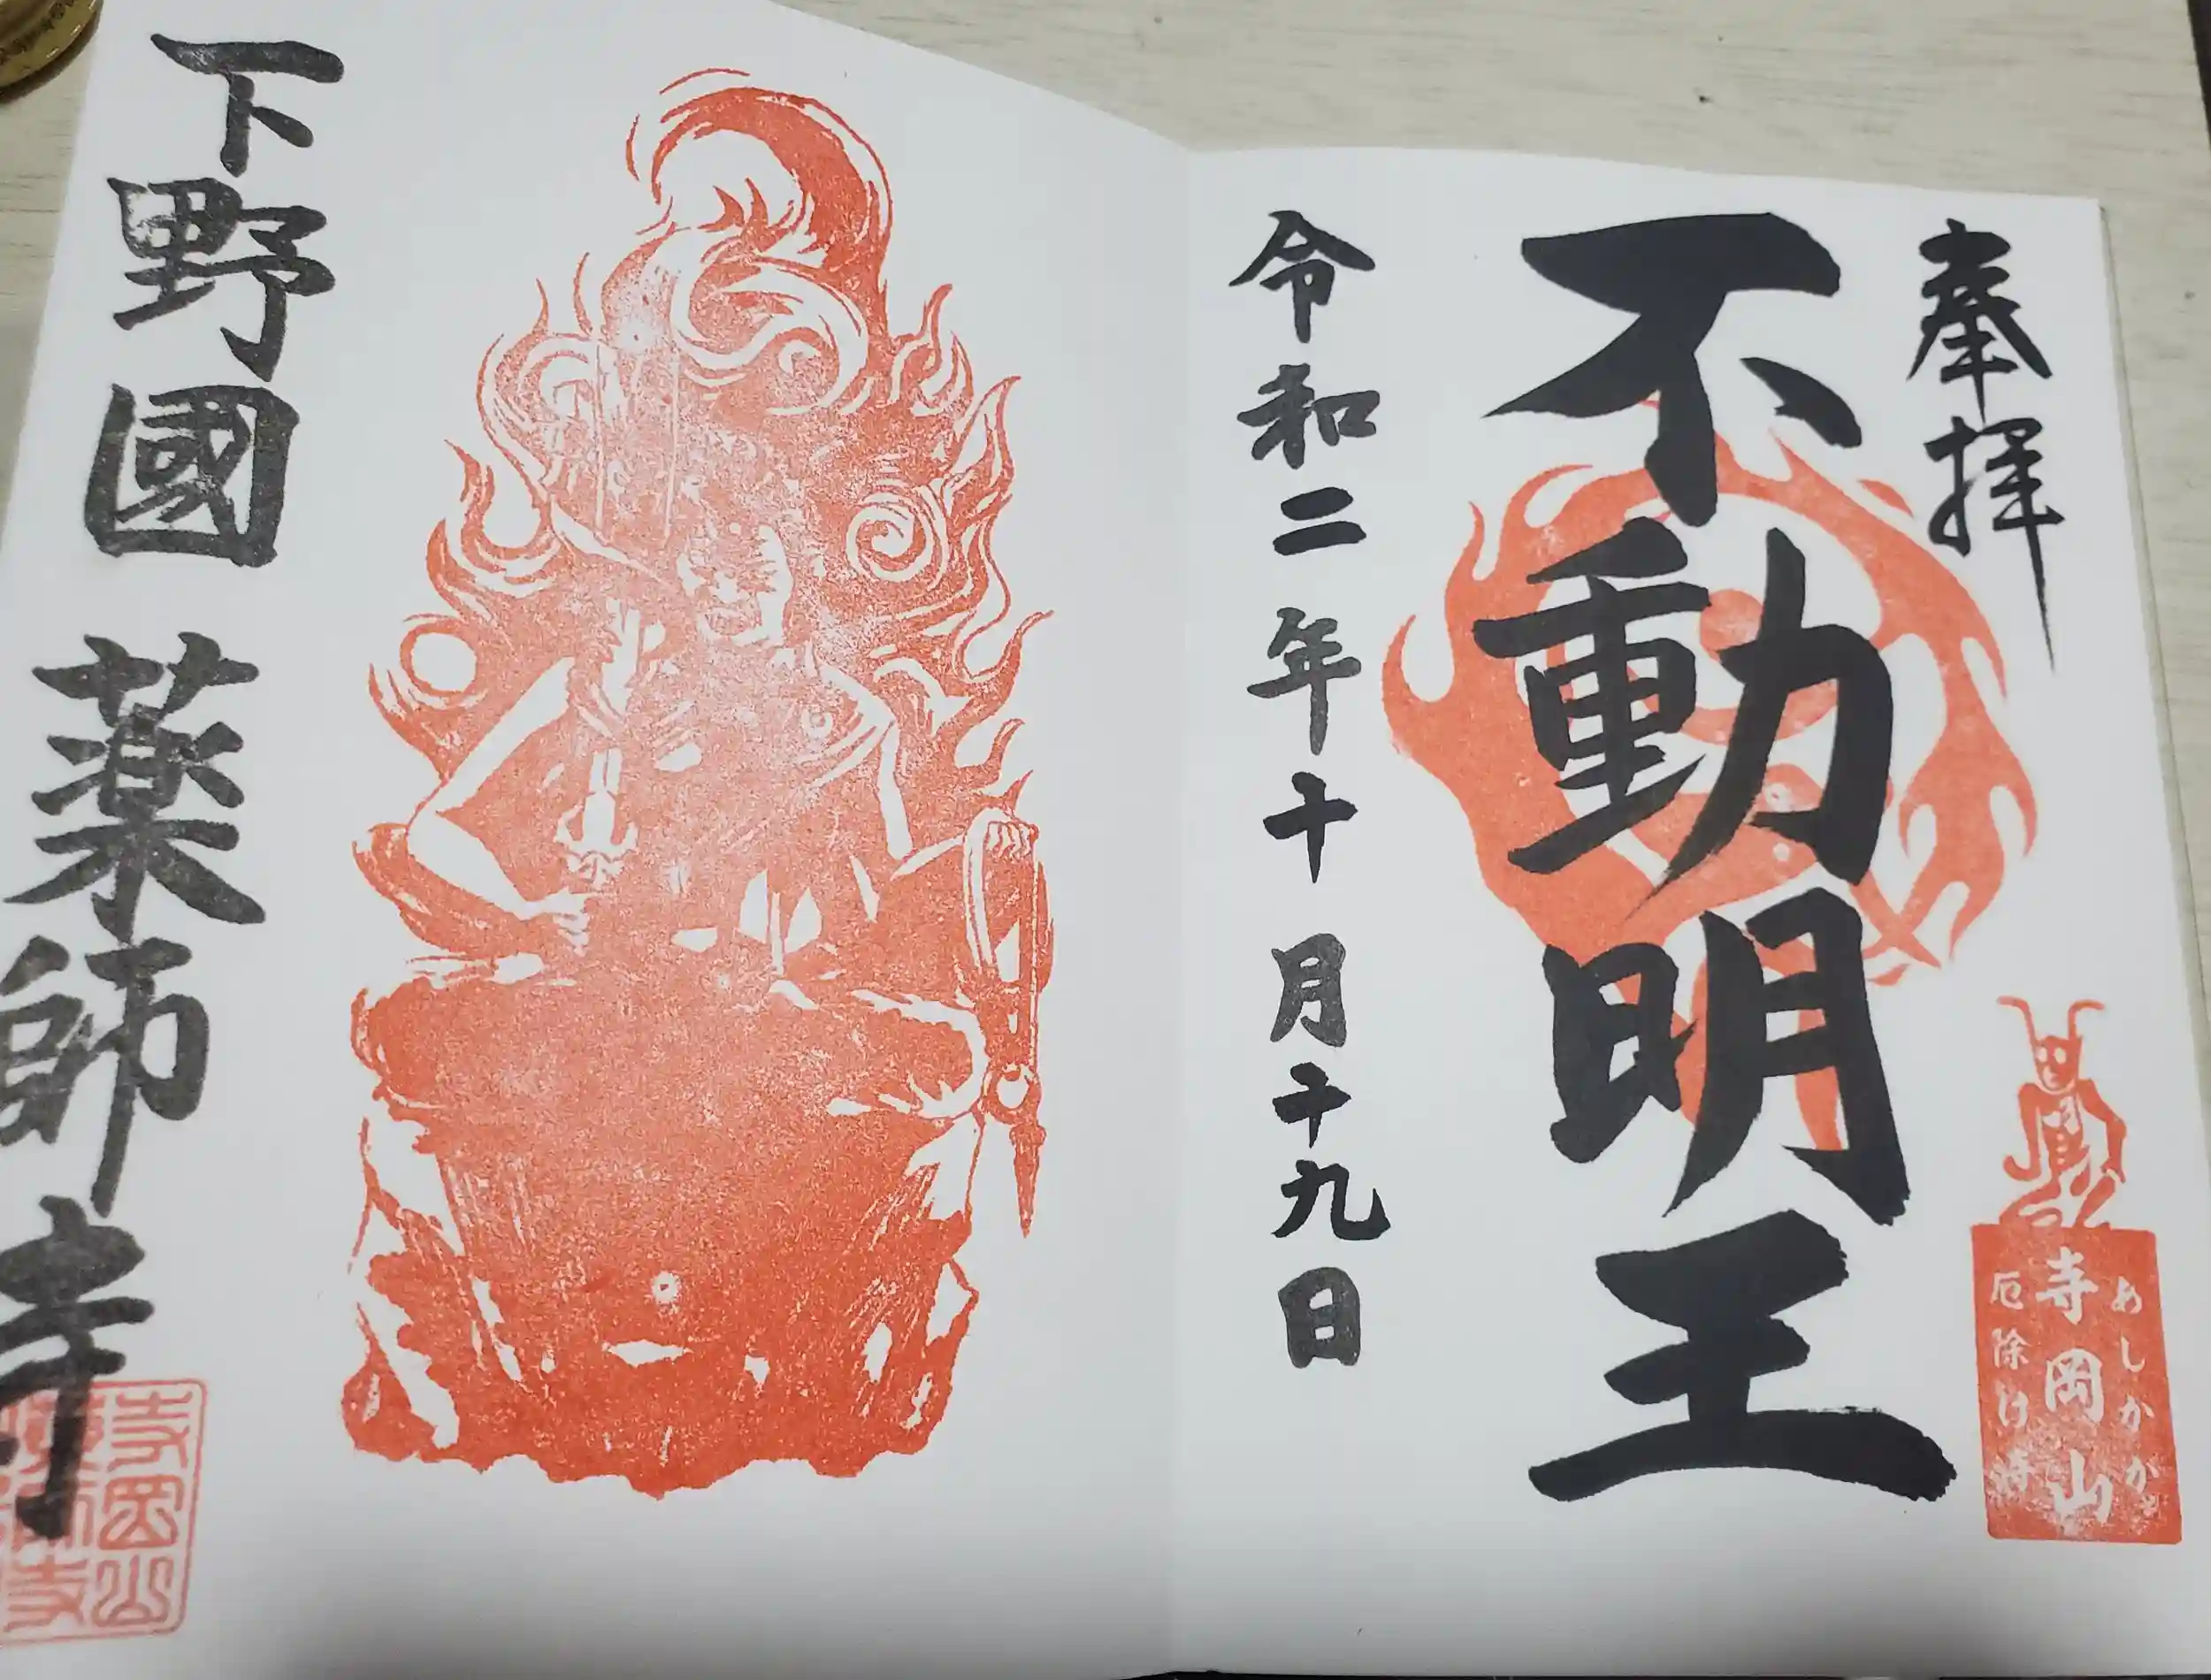 奉拝
不動明王
令和二年十月十九日
あしかが
寺岡山
厄除け
下野國 薬師寺
寺岡山